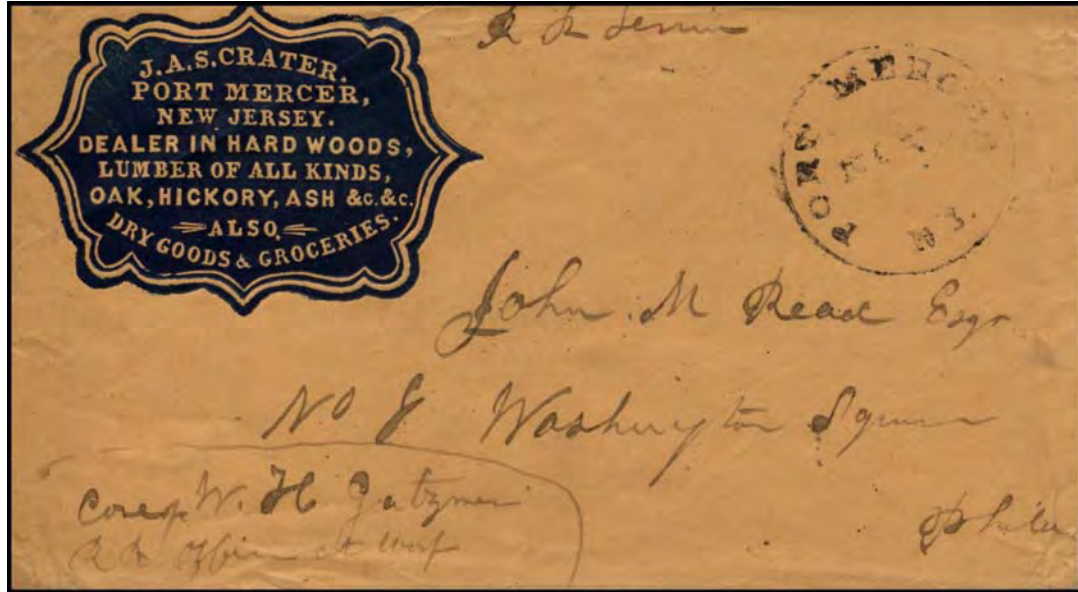 J.A.S. CRATER.
PORT MERCER,
NEW JERSEY.
DEALER IN HARD WOODS,
LUMBER OF ALL KINDS,
OAK, HICKORY, ASH &c. &c.
ALSO,
DRY GOODS & GROCERIES.
R R
PORT MERCER
N.J.
John M Read Esqr
No 8 Washington Square
Phila
Care of W. H. Gatzmer
R R Office at Worf